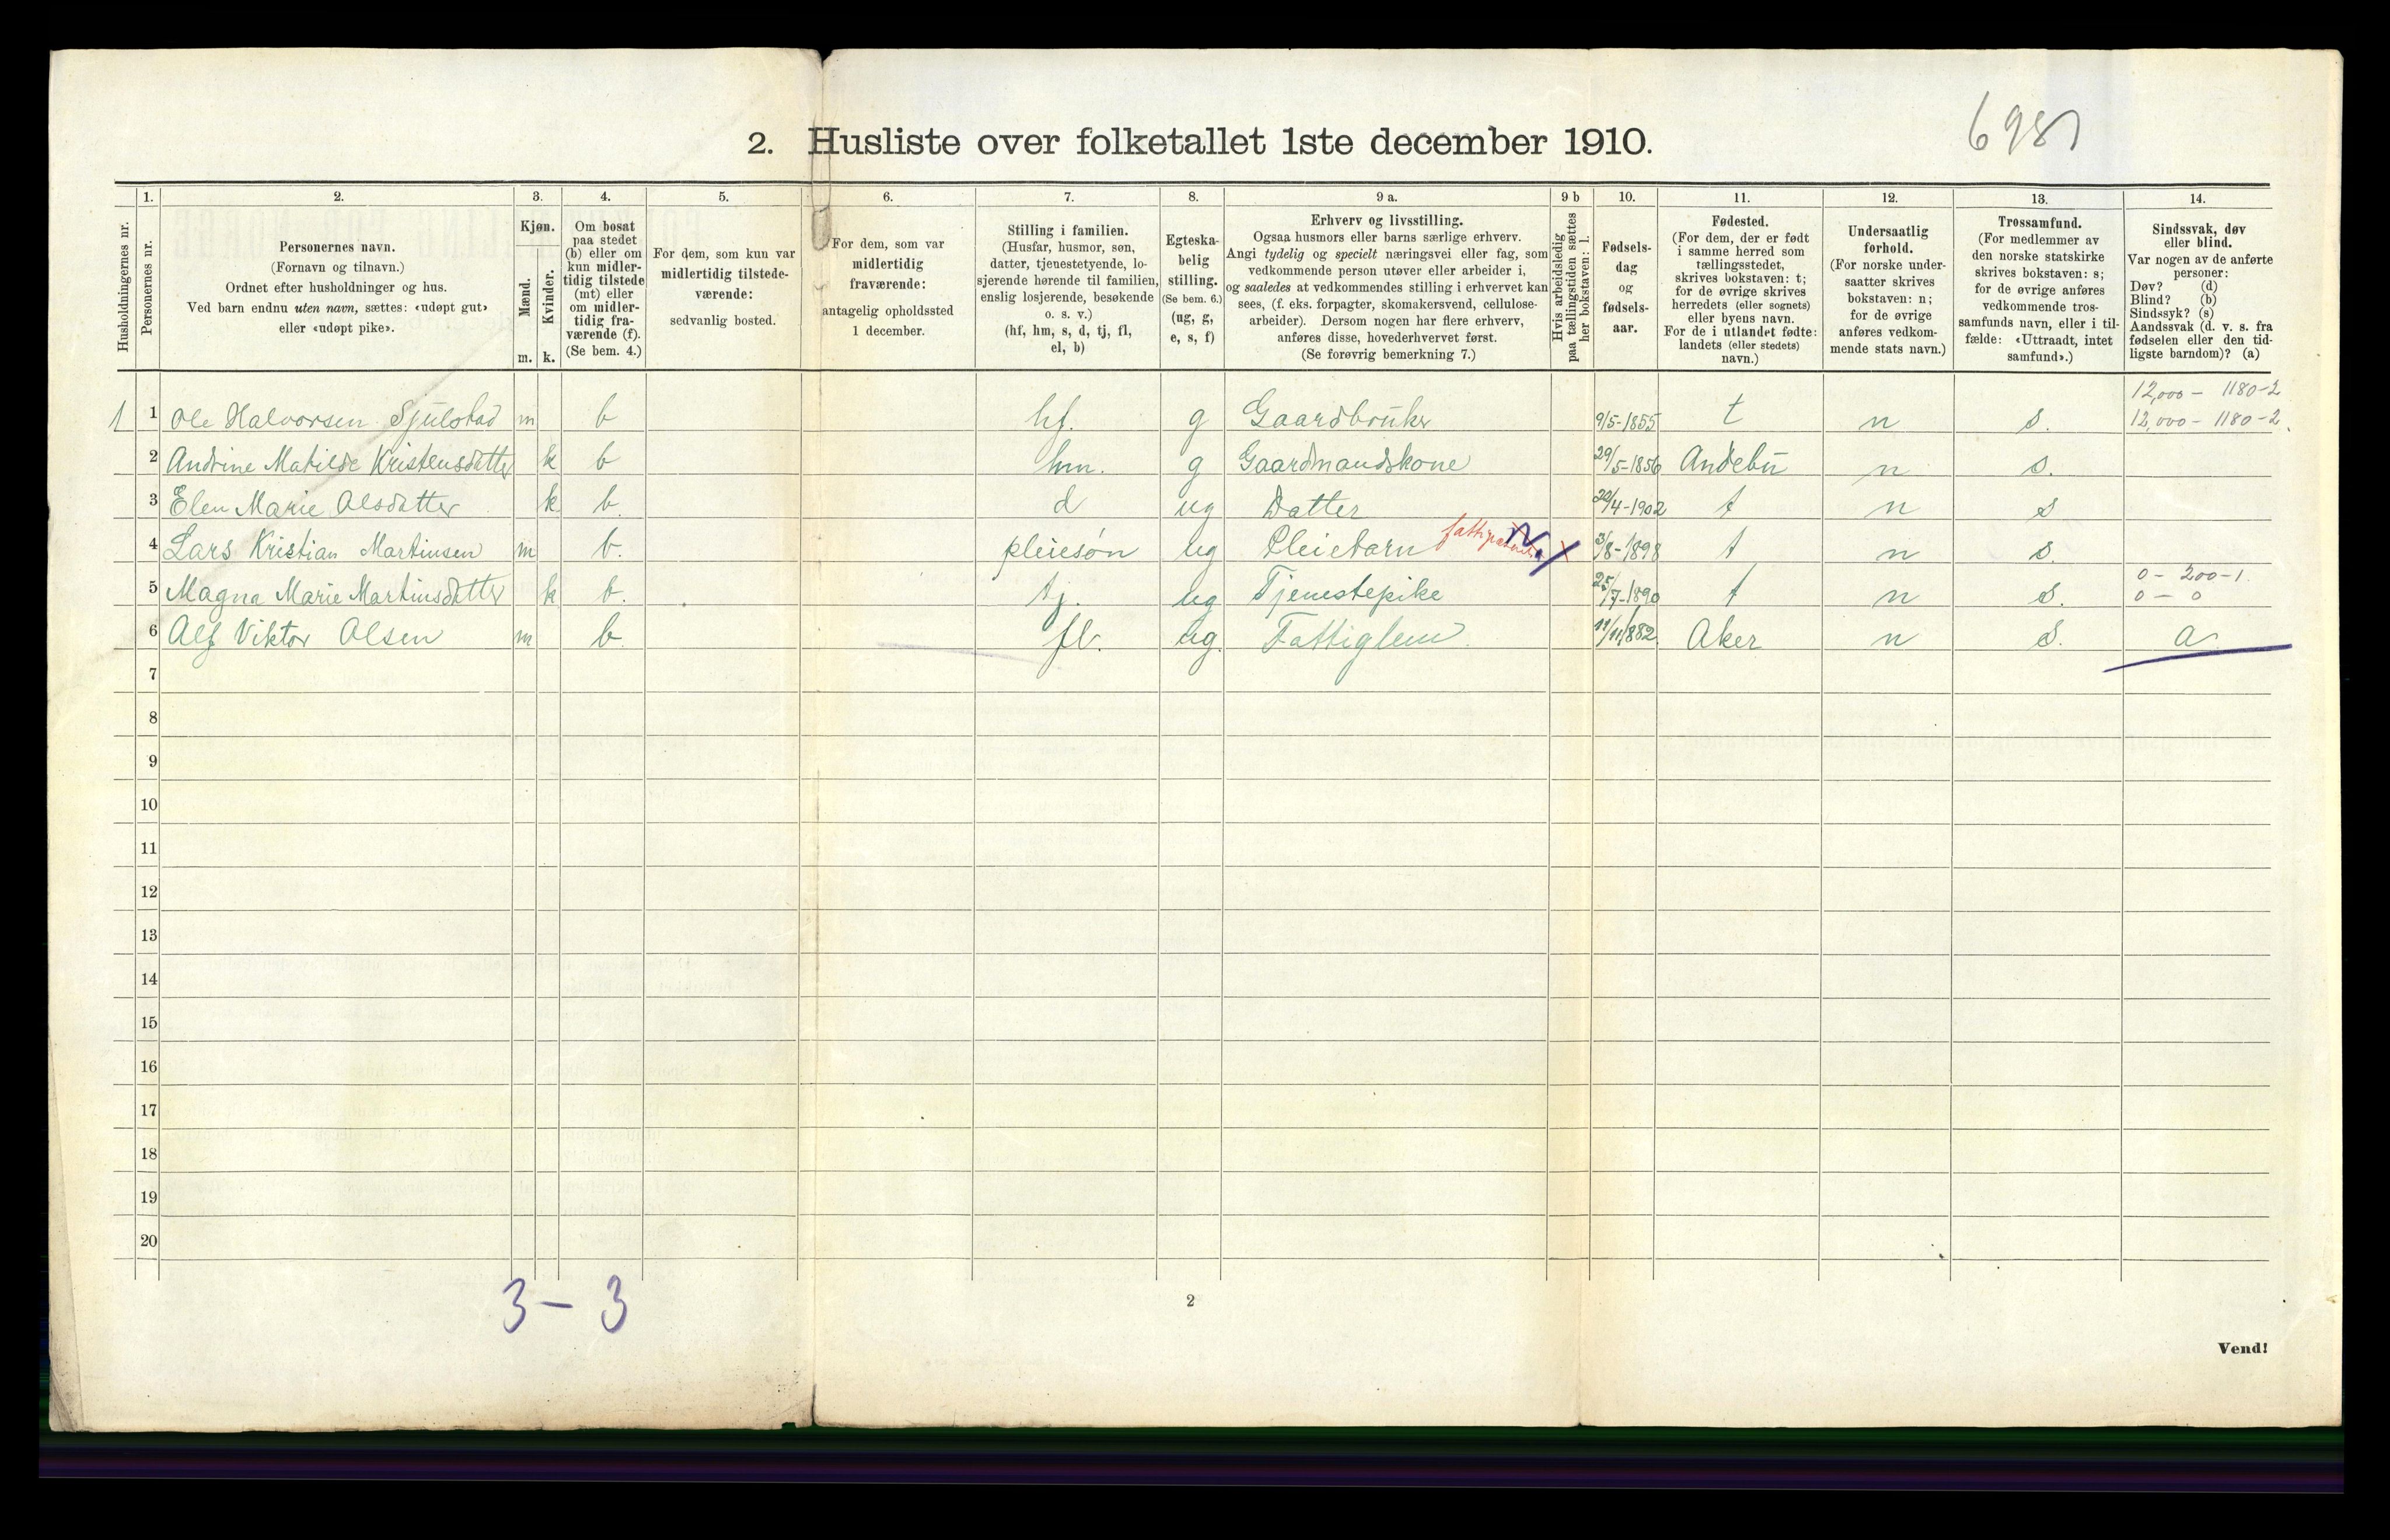 6981
2. Husliste over folketallet 1ste december 1910.
Husholdningernes nr.
1.
Personernes nr.
2.
Personernes navn.
(Fornavn og tilnavn.)
Ordnet efter husholdninger og hus.
Ved barn endnu uten navn, sættes: «udøpt gut»
eller «udøpt pike».
3.
Kjøn.
Mænd.
m.
Kvinder.
k.
4.
Om bosat
paa stedet
(b) eller om
kun midler-
tidig tilstede
(mt) eller
om midler-
tidig fra-
værende (f).
(Se bem. 4.)
5.
For dem, som kun var
midlertidig tilstede-
værende:
sedvanlig bosted.
6.
For dem, som var
midlertidig
fraværende:
antagelig opholdssted
1 december.
7.
Stilling i familien.
(Husfar, husmor, søn,
datter, tjenestetyende, lo-
sjerende hørende til familien,
enslig losjerende, besøkende
o. s. v.)
(hf, hm, s, d, tj, fl,
el, b)
8.
Egteska-
belig
stilling.
(Se bem. 6.)
(ug, g,
e, s, f)
9 a.
Erhverv og livsstilling.
Ogsaa husmors eller barns særlige erhverv.
Angi tydelig og specielt næringsvei eller fag, som
vedkommende person utøver eller arbeider i,
og saaledes at vedkommendes stilling i erhvervet kan
sees, (f. eks. forpagter, skomakersvend, cellulose-
arbeider). Dersom nogen har flere erhverv,
anføres disse, hovederhvervet først.
(Se forøvrig bemerkning 7.)
9 b
Hvis arbeidsledig
paa tællingstiden sættes
her bokstaven: l.
10.
Fødsels-
dag
og
fødsels-
aar.
11.
Fødested.
(For dem, der er født
i samme herred som
tællingsstedet,
skrives bokstaven: t;
for de øvrige skrives
herredets (eller sognets)
eller byens navn.
For de i utlandet fødte:
landets (eller stedets)
navn.)
12.
Undersaatlig
forhold.
(For norske under-
saatter skrives
bokstaven: n;
for de øvrige
anføres vedkom-
mende stats navn.)
13.
Trossamfund.
(For medlemmer av
den norske statskirke
skrives bokstaven: s;
for de øvrige anføres
vedkommende tros-
samfunds navn, eller i til-
fælde: «Uttraadt, intet
samfund».)
14.
Sindssvak, døv
eller blind.
Var nogen av de anførte
personer:
Døv? (d)
Blind? (b)
Sindssyk? (s)
Aandssvak (d. v. s. fra
fødselen eller den tid-
ligste barndom)? (a)
12,000 - 1180-2
1 1 Ole Halvorsen Sjulstad m b hf. g Gaardbruker 9/5-1855 t n s. 12,000 - 1180-2
2 Andrine Matilde Kristensdatter k b hm. g Gaardmandskone 29/5-1856 Andebu n s.
3 Elen Marie Olsdatter k b. d ug Datter 20/4-1902 t n s
4 Lars Kristian Martinsen m b. pleiesøn ug Pleiebarn 3/8-1898 t n s.
0 - 200-1.
5 Magna Marie Martinsdatter k b. tj. ug Tjenestepike 25/7-1890 t n s. 0 - 0
6 Alf Viktor Olsen m b. fl. ug. Fattiglem. 11/11 1882. Aker n s. a.
7
8
9
10
11
12
13
14
15
16
17
18
19
20
3 - 3
2
Vend!